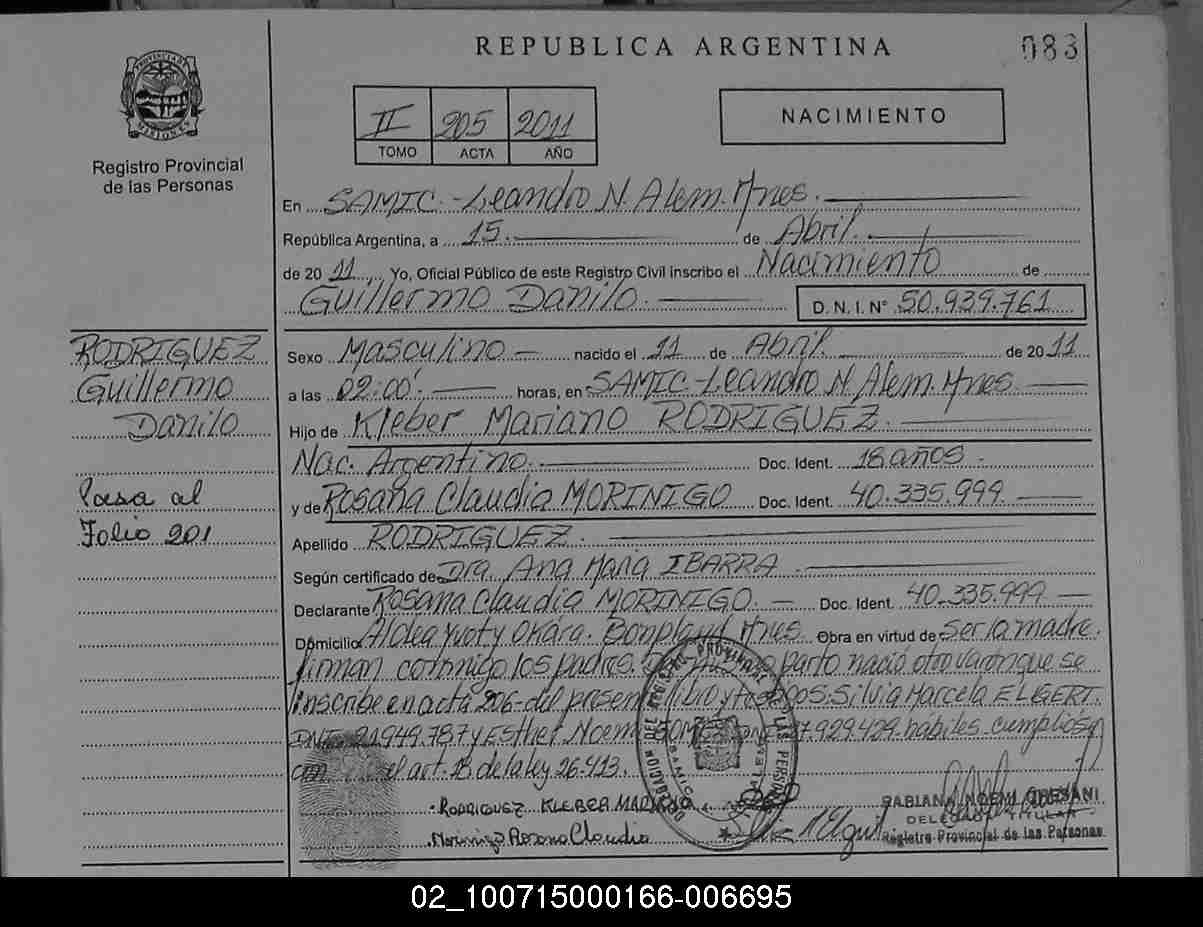 REPUBLICA ARGENTINA
083
PROVINCIA DE
MISIONES
Registro Provincial
de las Personas
II 205 2011
TOMO ACTA AÑO
NACIMIENTO
En SAMIC - Leandro N. Alem. Mnes.
República Argentina, a 15. de Abril.
de 2011 Yo, Oficial Público de este Registro Civil inscribo el Nacimiento de
Guillermo Danilo. D.N.I. Nº 50.939.761
RODRIGUEZ
Guillermo
Danilo
Sexo Masculino nacido el 11 de Abril. de 2011
a las 02:00'. horas, en SAMIC - Leandro N. Alem. Mnes
Hijo de Kleber Mariano RODRIGUEZ.
Nac. Argentino. Doc. Ident. 18 años.
Pasa al
Folio 201
y de Rosana Claudia MORINIGO Doc. Ident. 40.335.999.
Apellido RODRIGUEZ.
Según certificado de Dra. Ana Maria IBARRA
Declarante Rosana Claudia MORINIGO. Doc. Ident. 40.335.999
Domicilio Aldea Yvoty Okara. Bonpland Mnes. Obra en virtud de ser la madre.
firman conmigo los padres. parto nació otro varon que se
inscribe en acta 206 del presente libro y Silvia Marcela ELGERT.
DNI. 21.949.787 y Esther Noemi GOMEZ 929.429 hábiles. cumpliose
el art. 28 de la ley 26.413.
RODRIGUEZ KLEBER MARIANO
Morinigo Rosana Claudia
FABIANA NOEMI
DELEGADA TITULAR
Registro Provincial de las Personas
02_100715000166-006695